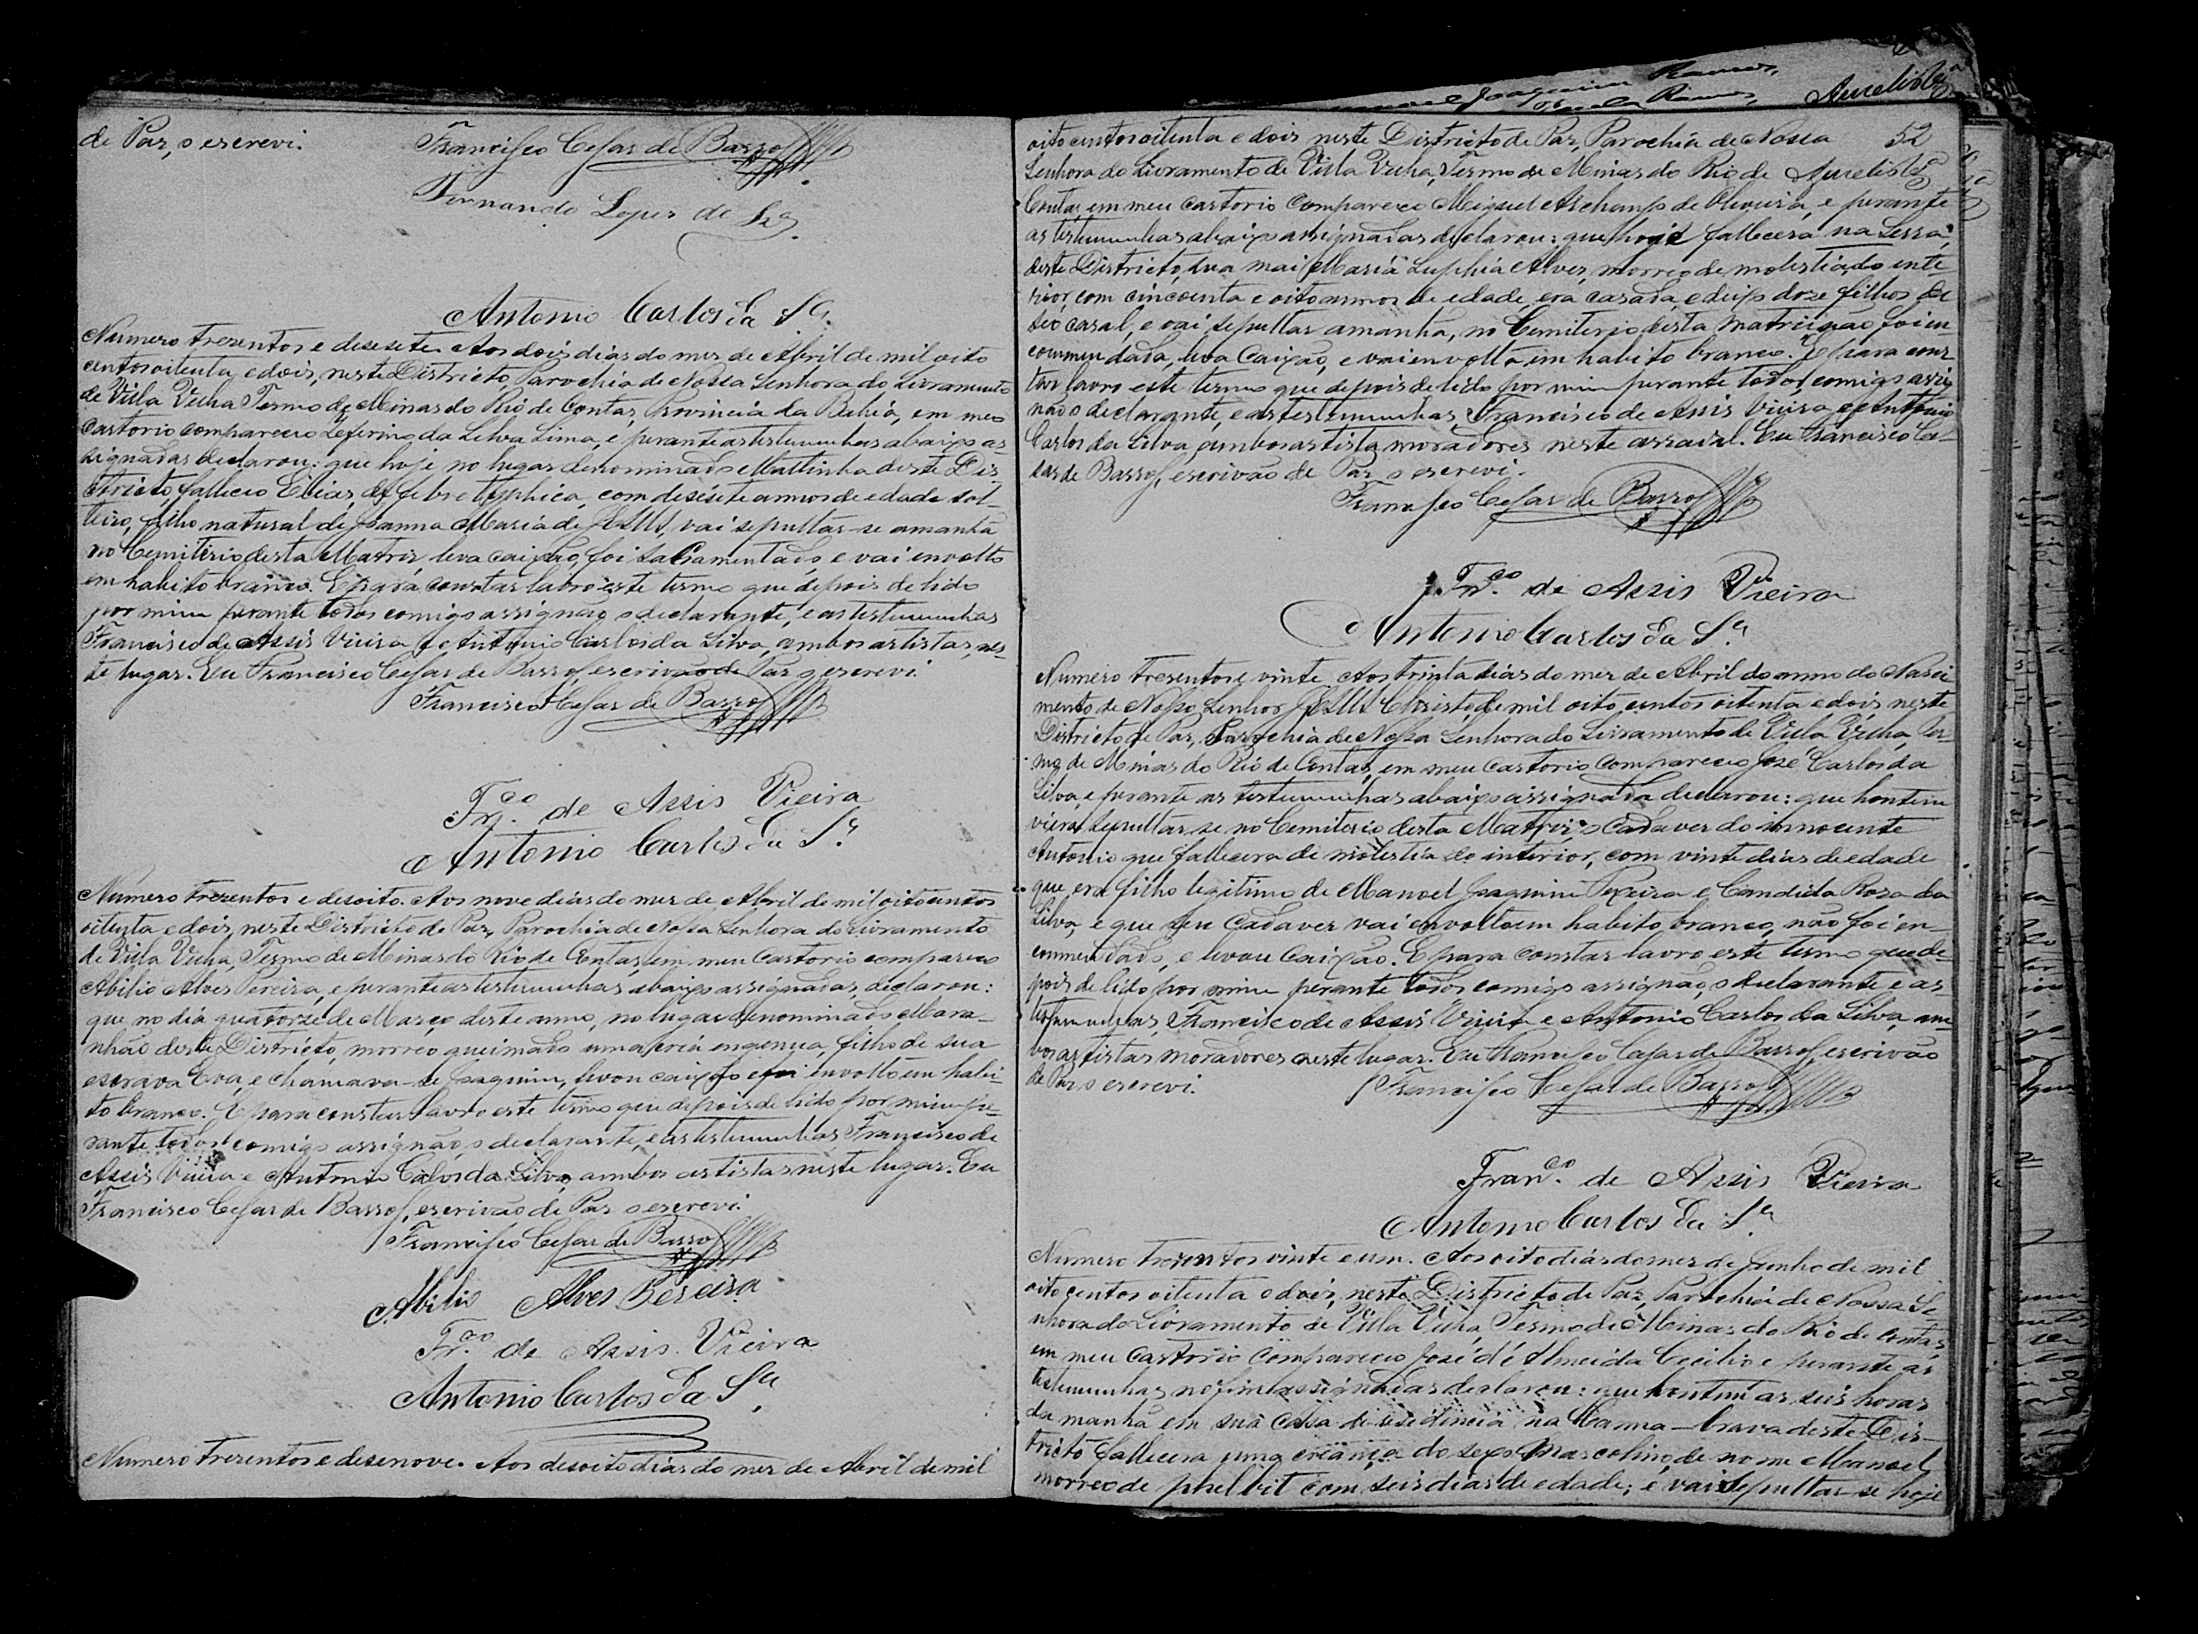 de Paz, o escrevi.
Francisco Cesar de Barros
Fernando Lopes de Sza
Antonio Carlos da Sa.
Numero trezentos e desesete. Aos dois dias do mez de Abril de mil oito
centos oitenta e dois, neste Districto, Parochia de Nossa Senhora do Livramento
de Villa Velha Termo de Minas do Rio de Contas, Provincia da Bahia, em meo
Cartorio compareceo Zeferino da Silva Lima, e perante as testemunhas abaixo as-
signadas declarou: que hoje no lugar denominado Mattinha deste Dis-
tricto falleceo Elias, de febre typhica, com desesete annos de edade sol-
teiro, filho natural de Joanna Maria de JESUS, vai sepultar-se amanhã
no Cemiterio desta Matriz, leva caixão, foi sacramentado, e vai envolto
em habito branco. E para constar lavro este termo que depois de lido
por mim perante todos comigo assignão o declarante, e as testemunhas
Francisco de Assis Vieira e Antonio Carlos da Silva, ambos artistas, nes-
te lugar. Eu Francisco Cesar de Barros, escrivão de Paz o escrevi.
Francisco Cesar de Barros
Frco. de Assis Vieira
Antonio Carlos da Sa
Numero trezentos e desoito. Aos nove dias do mez de Abril de mil oitocentos
oitenta e dois, neste Districto de Paz, Parochia de Nossa Senhora do Livramento
de Villa Velha, Termo de Minas do Rio de Contas, em meu Cartorio compareceo
Abilio Alves Pereira, e perante as testemunhas abaixo assignadas, declarou:
que no dia quatorze de Março deste anno, no lugar denominado Mara-
nhão deste Districto, morreo queimado uma cria ingenua, filho de sua
escrava Eva, e chamava-se Joaquim, levou caixão e foi envolto em habi-
to branco. E para constar lavro este termo que depois de lido por mim pe-
rante todos comigo assignão, o declarante, e as testemunhas Francisco de
Assis Vieira e Antonio Carlos da Silva, ambos artistas neste lugar. Eu
Francisco Cesar de Barros, escrivão de Paz o escrevi.
Francisco Cesar de Barros
Abilio Alves Pereira
Frco. de Assis Vieira
Antonio Carlos da Sa.
Numero trezentos e desenove. Aos desoito dias do mez de Abril de mil
Joaquim Ramos,
Ramos,
Aurelio
52
oitocentos oitenta e dois neste Districto de Paz, Parochia de Nossa
Senhora do Livramento de Villa Velha, Termo de Minas do Rio de
Contas, em meu Cartorio compareceo Miguel Archanjo de Oliveira, e perante
as testemunhas abaixo assignadas declarou: que hoje fallecera na Serra,
deste Districto, sua mai Maria Alves, morreo de molestia do inte-
rior, com cincoenta e oito annos de edade, era casada, e deixo doze filhos de
seo casal, e vai sepultar amanhã, no Cemiterio desta Matriz, não foi en
commendada, leva Caixão, e vai envolta em habito branco. E para cons-
tar lavro este termo que depois de lido por mim perante todos, comigo assig
não o declarante, e as testemunhas, Francisco de Assis Vieira e Antonio
Carlos da Silva ambos artistas moradores neste arraial. Eu Francisco Ce-
sar de Barros, escrivão de Paz o escrevi.
Francisco Cesar de Barros
Frco. de Assis Vieira
Antonio Carlos da Sa.
Numero trezentos e vinte. Aos trinta dias do mez de Abril do anno do Nasci
mento de Nosso Senhor JESUS Christo de mil oito centos oitenta e dois neste
Districto de Paz, Parochia de Nossa Senhora do Livramento de Villa Velha, Ter-
mo de Minas do Rio de Contas, em meu Cartorio compareceo José Carlos da
Silva, e perante as testemunhas abaixo assignada declarou: que hontem
viera sepultar-se no Cemiterio desta Matriz o Cadaver do innocente
Antonio que fallecera de molestia do interior, com vinte dias de edade
que era filho legitimo de Manoel Joaquim e Candida Roza da
Silva, e que seu Cadaver vai envolto em habito branco, não foi en-
commendado, e levou caixão. E para constar lavro este termo que de-
pois de lido por mim perante todos, comigo assignão, o declarante e as
testemunhas, Francisco de Assis Vieira e Antonio Carlos da Silva, am-
bos artistas moradores neste lugar. Eu Francisco Cesar de Barros, escrivão
de Paz o escrevi.
Francisco Cesar de Barros
Franco. de Assis Vieira
Antonio Carlos da Sa.
Numero trezentos vinte e um. Aos oito dias do mez de Junho de mil
oito centos oitenta e dois, neste Districto de Paz, Parochia de Nossa Se
nhora do Livramento de Villa Velha, Termo de Minas do Rio de Contas
em meu Cartorio compareceo José d'Almeida Cecilio e perante as
testemunhas no fim assignadas declarou: que hontem as seis horas
da manhã em sua casa de residencia na Canna-brava deste Dis-
tricto fallecera uma criança do sexo mascolino, de nome Manoel
morreo de com seis dias de edade; e vai sepultar-se hoje